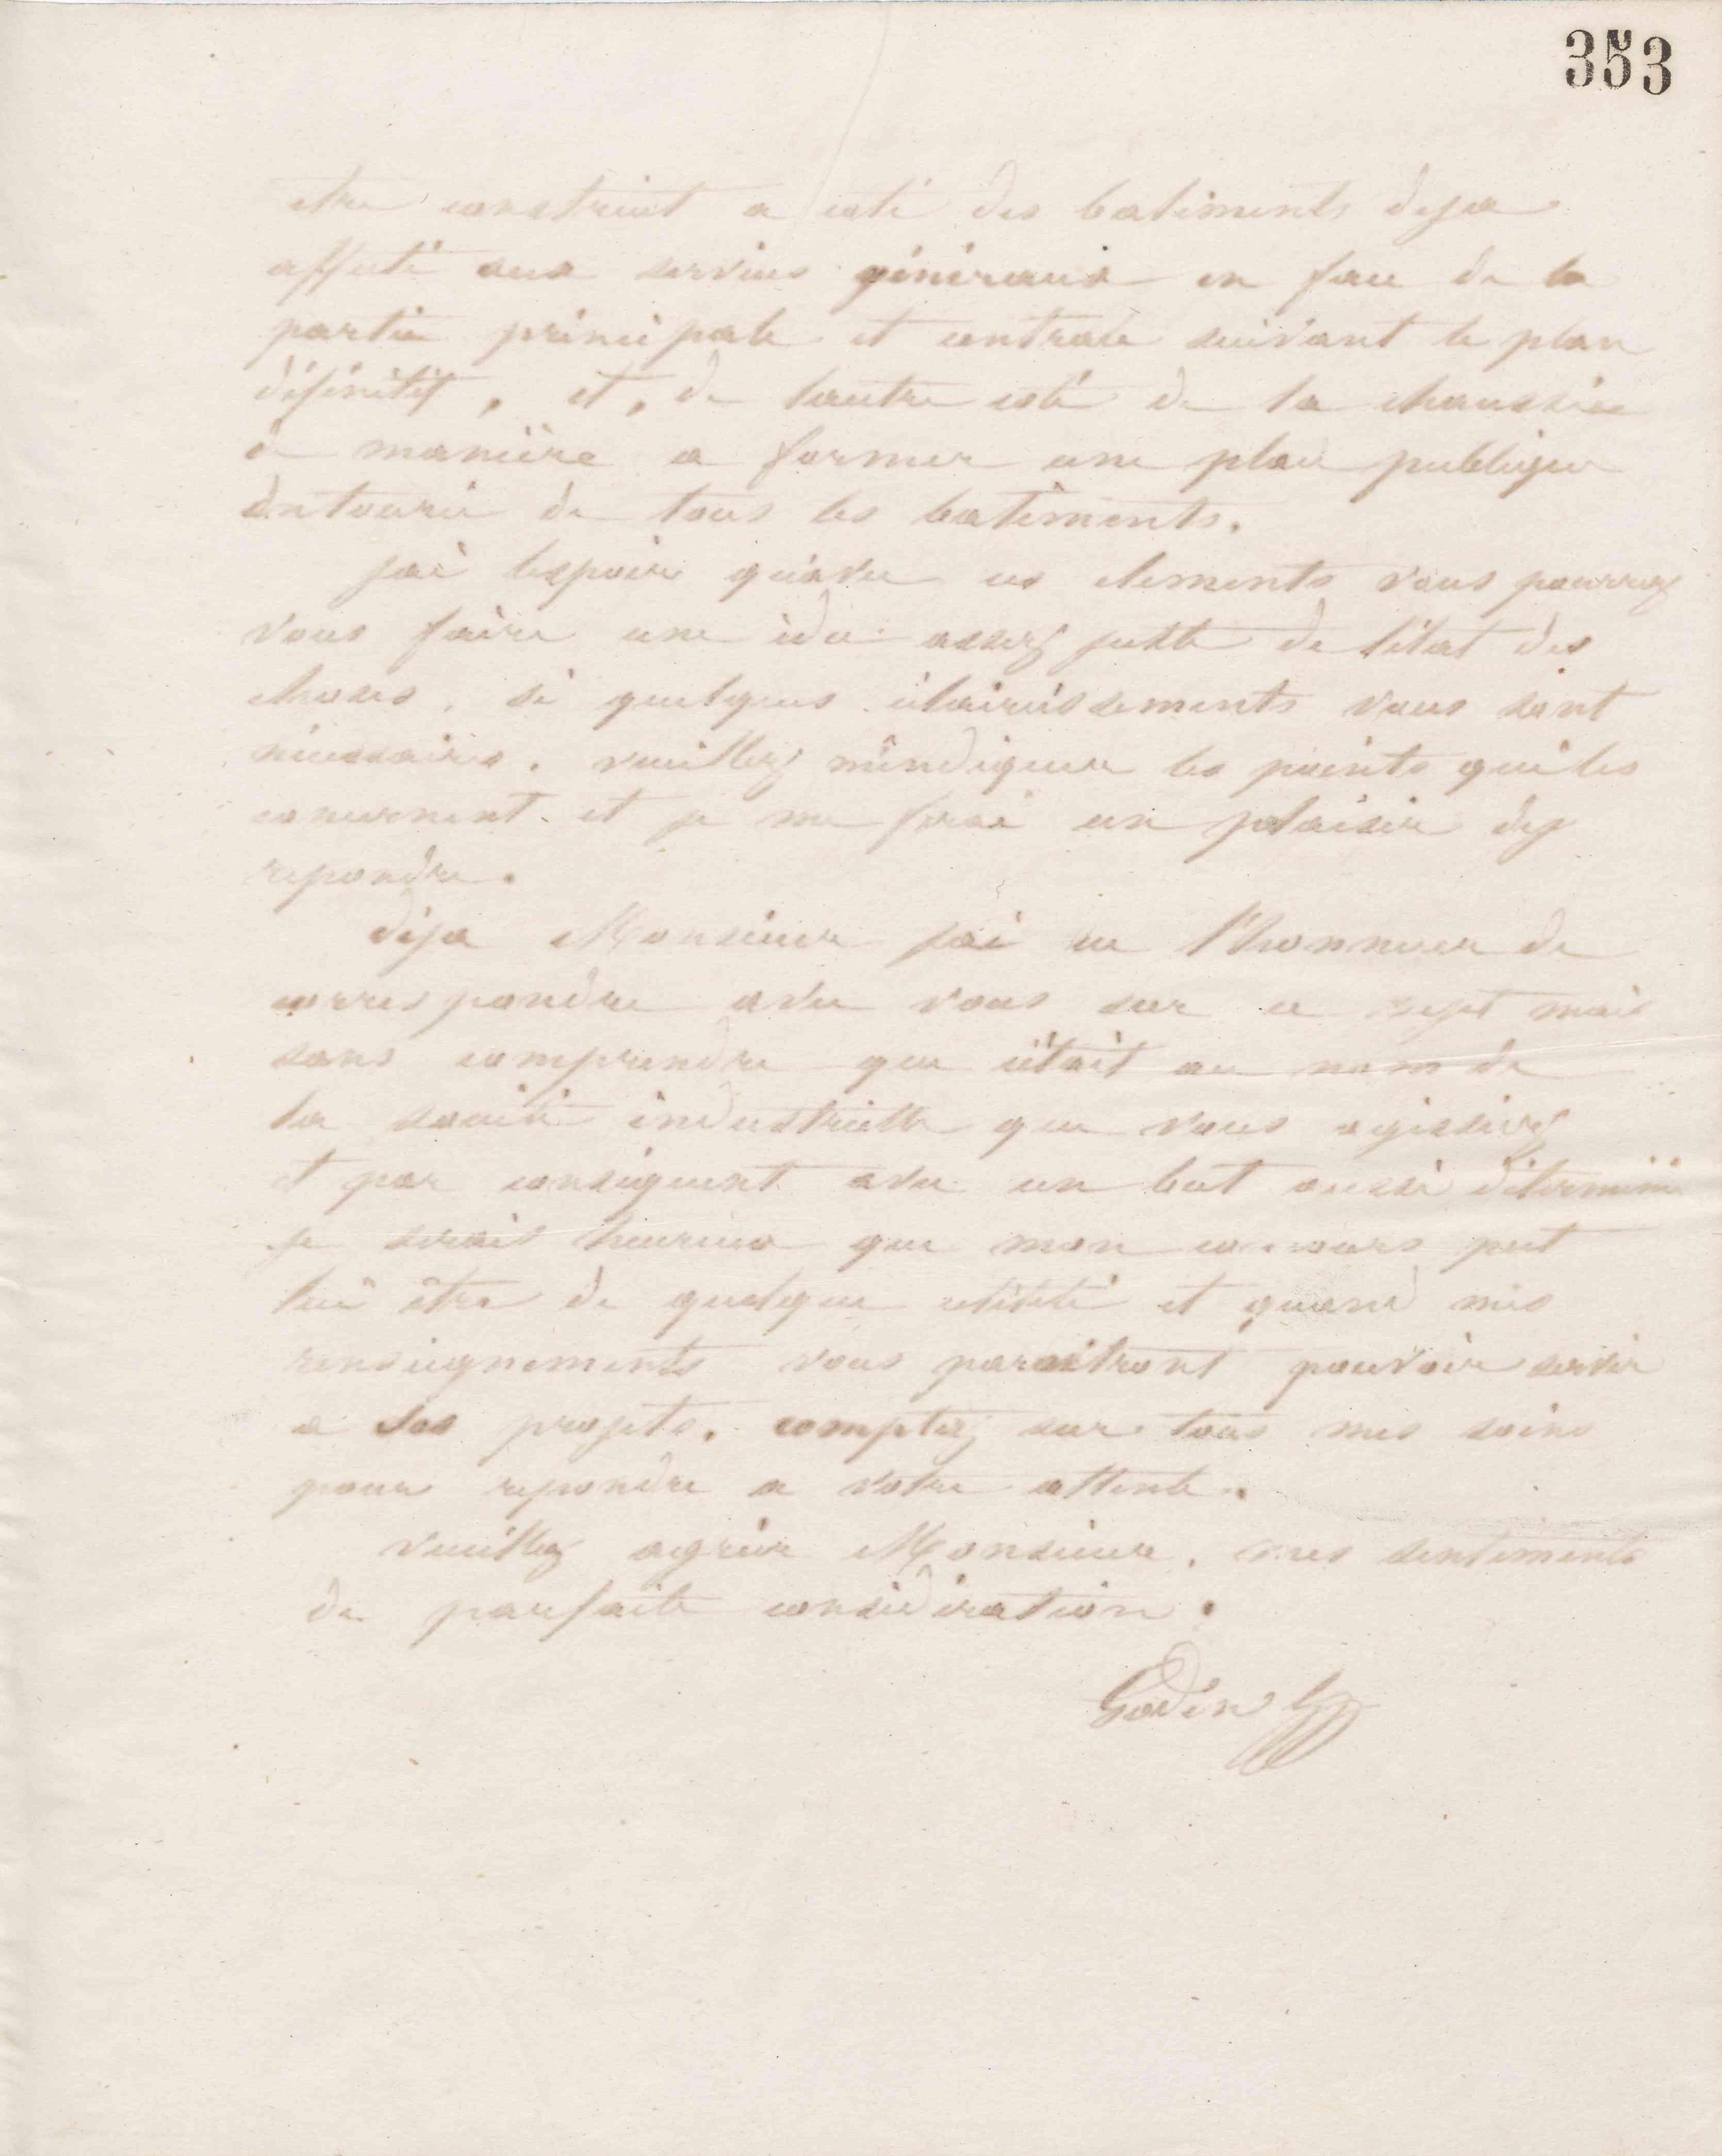 353
etre construit a coté des batiments deja
affecté aux services généraux en face de la
partie principale et centrale suivant le plan
définitif, et, de lautre coté de la chaussée
de manière a former une place publique
entourée de tous les batiments.
jai lespoir quavec ces elements vous pourrez
vous faire une idee assez juste de létat des
choses, si quelques éclaircissements vous sont
nécessaires, veuillez mindiquer les points qui les
concernent et je me ferai un plaisir dy
repondre.
déja Monsieur jai eu l'honneur de
correspondre avec vous sur ce sujet mais
sans comprendre que cétait au nom de
la société industrielle que vous agissiez
et par conséquent avec un but aussi déterminé
je serais heureux que mon concours put
lui être de quelque utilité et quand mes
renseignements vous paraitront pouvoir servir
a ses projets, comptez sur tous mes soins
pour repondre a votre attente.
Veuillez agréer Monsieur, mes sentiments
de parfaite considération.
Godin